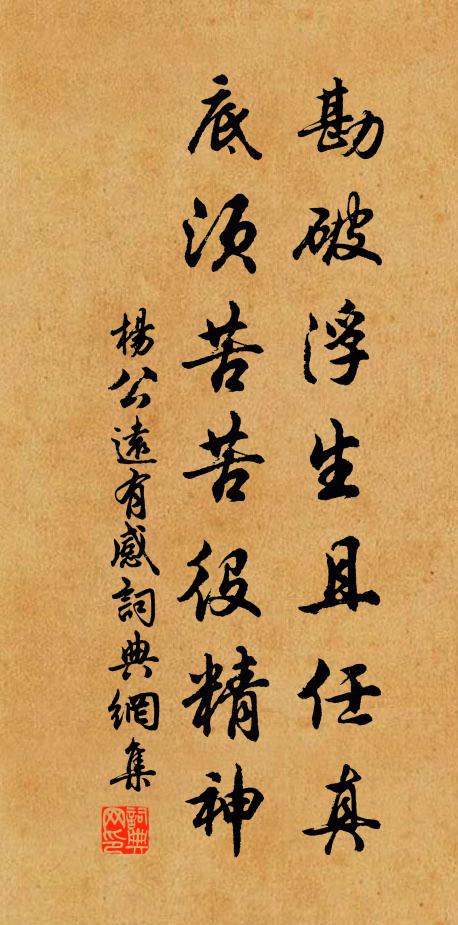 勘破浮生且任真
底須苦苦役精神
楊公遠有感詞典網集
詞典
网印